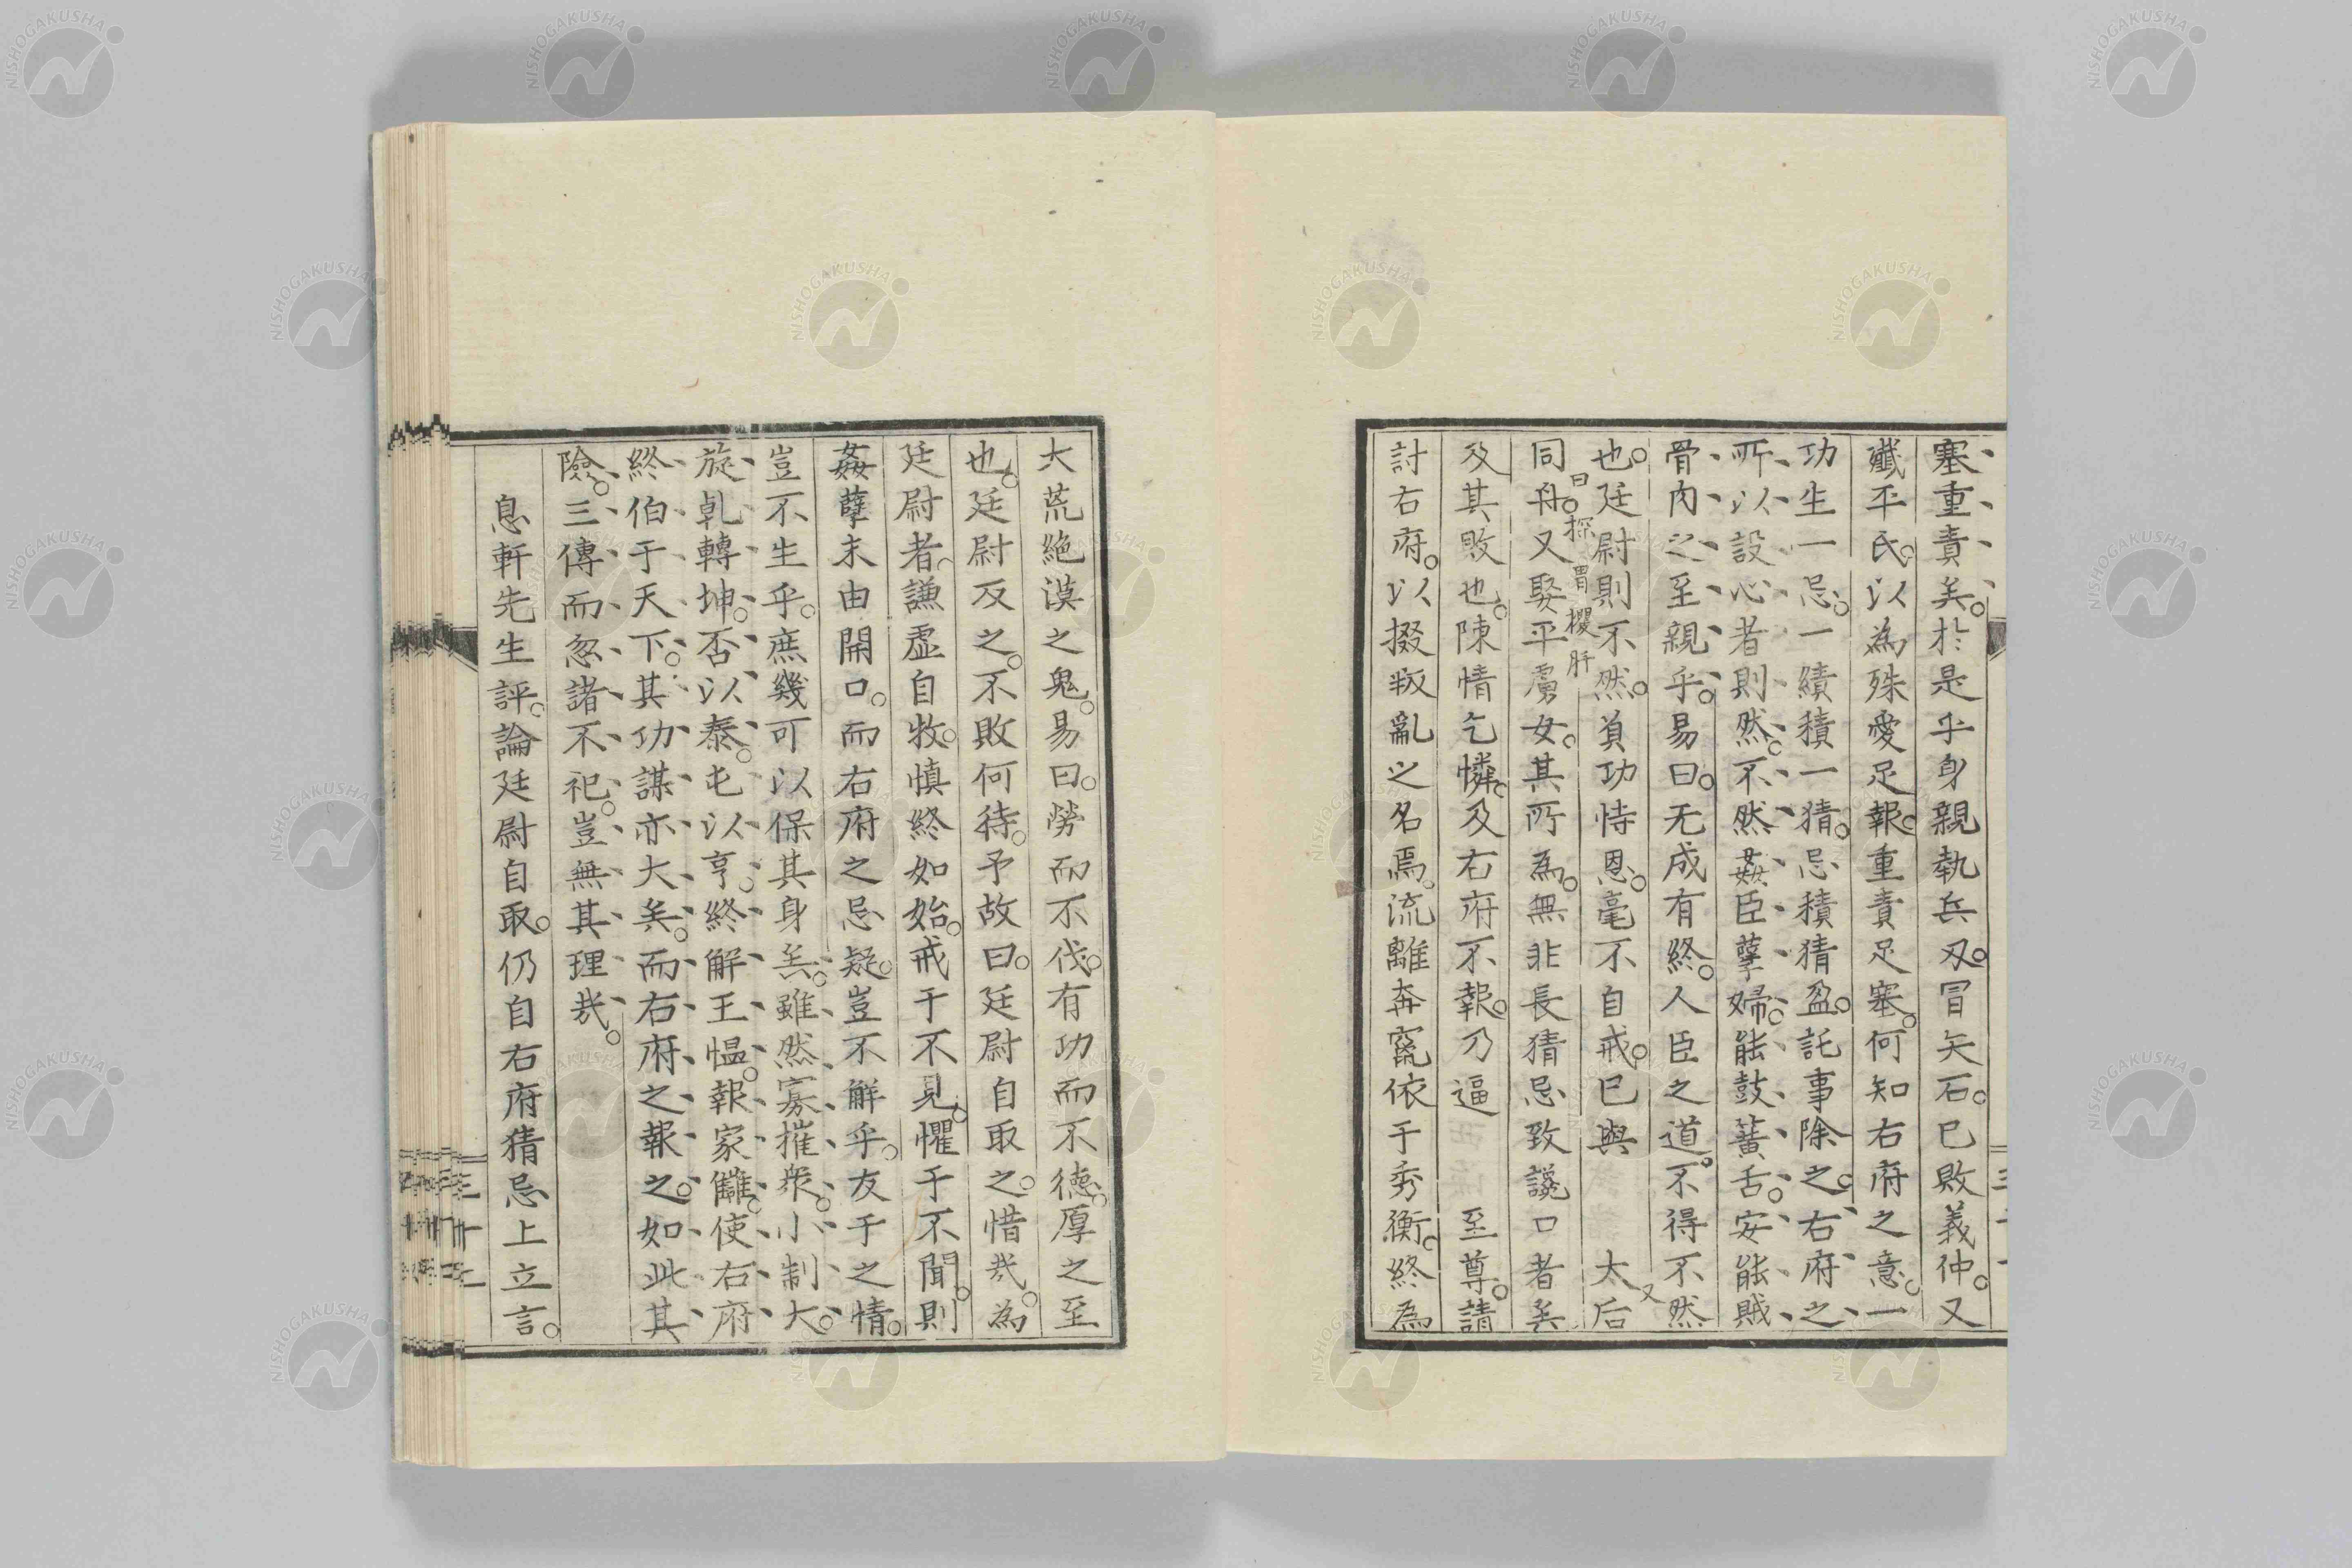 塞重責矣。於是乎身親執兵刃。冒矢石。已敗義仲。又
殲平氏。以為殊愛足報。重責足塞。何知右府之意。一
功生一忌。一績積一猜。忌積猜盈。託事除之。右府之
所以設心者則然。不然姦臣孽婦。能鼓簧舌。安能賊
骨肉之至親乎。易曰。无成有終。人臣之道。不得不然
也。廷尉則不然。負功恃恩。毫不自戒。已與太后
又
同舟。又娶平虜女。其所為。無非長猜忌致讒口者矣
曰探胃櫻肝
及其敗也。陳情乞憐。及右府不報。乃逼至尊。請
討右府。以掇叛亂之名焉。流離奔竄。依于秀衡。終為
大荒絕漠之鬼。易曰。勞而不伐。有功而不德。厚之至
也。廷尉反之。不敗何待。予故曰。廷尉自取之。惜哉。為
廷尉者。謙虛自牧。慎終如始。戒于不見。懼于不聞。則
姦孽末由開口。而右府之忌疑。豈不解乎。友于之情。
豈不生乎。庶幾可以保其身矣。雖然寡摧衆。小制大。
旋乹轉坤。否以泰。屯以亨。終解王愠。報家讎。使右府
終伯于天下。其功謀亦大矣。而右府之報之。如此其
險。三傳而忽諸不祀。豈無其理哉。
息軒先生評。論廷尉自取。仍自右府猜忌上立言。
NISHOGAKUSHA